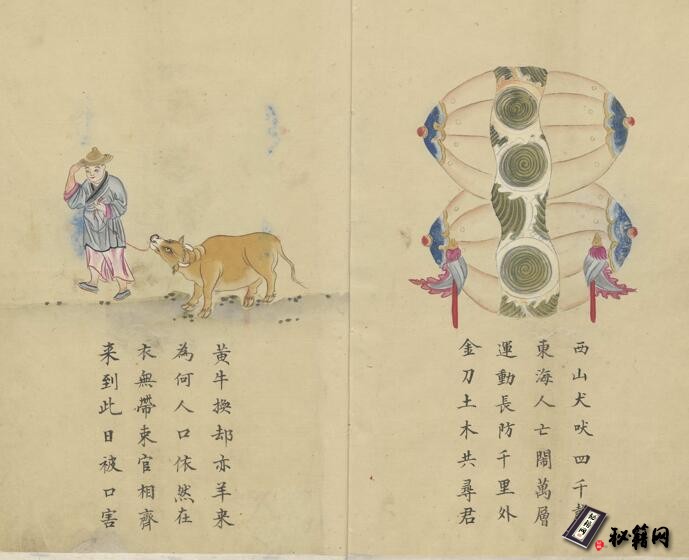 西山犬吠四千
東海人亡閙萬層
運動長防千里外
金刀土木共尋君
黃牛換却亦羊来
為何人口依然在
衣無帶束官相齊
来到此日被口害
秘籍网